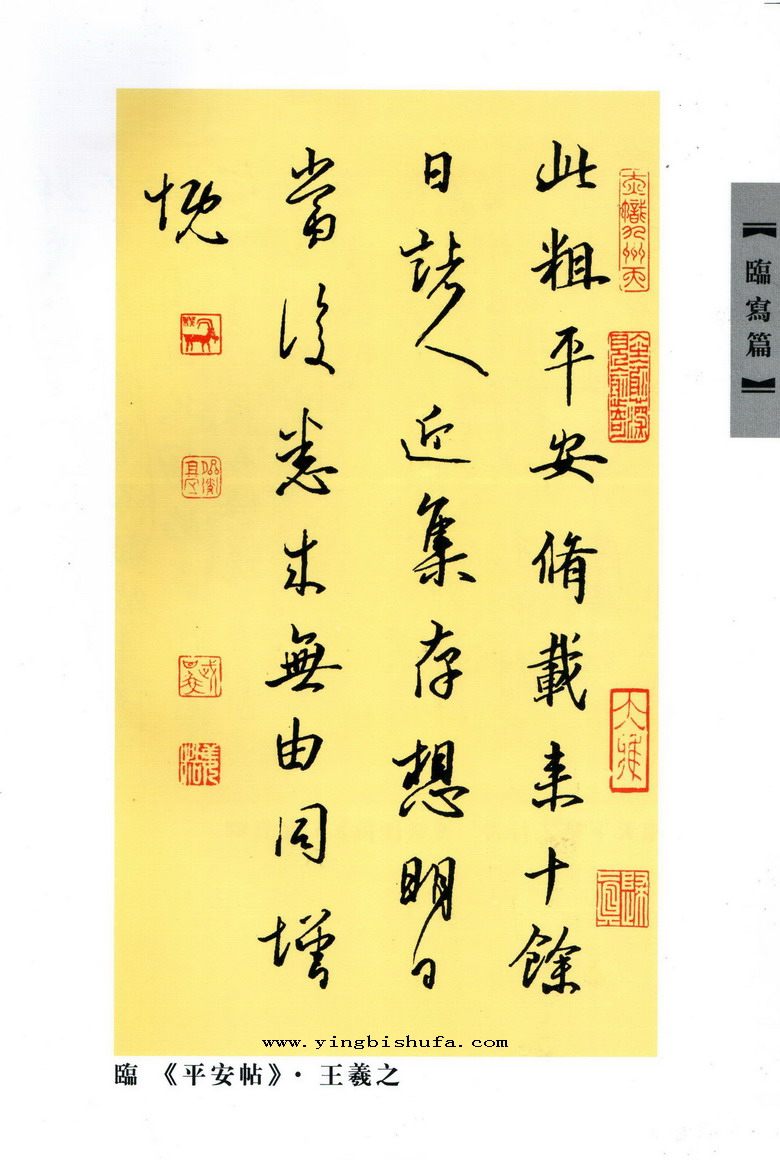 【臨寫篇】
此粗平安脩載来十餘
日諸人近集存想明日
當復悉来無由同增
慨
大雅
www.yingbishufa.com
臨 《平安帖》· 王羲之